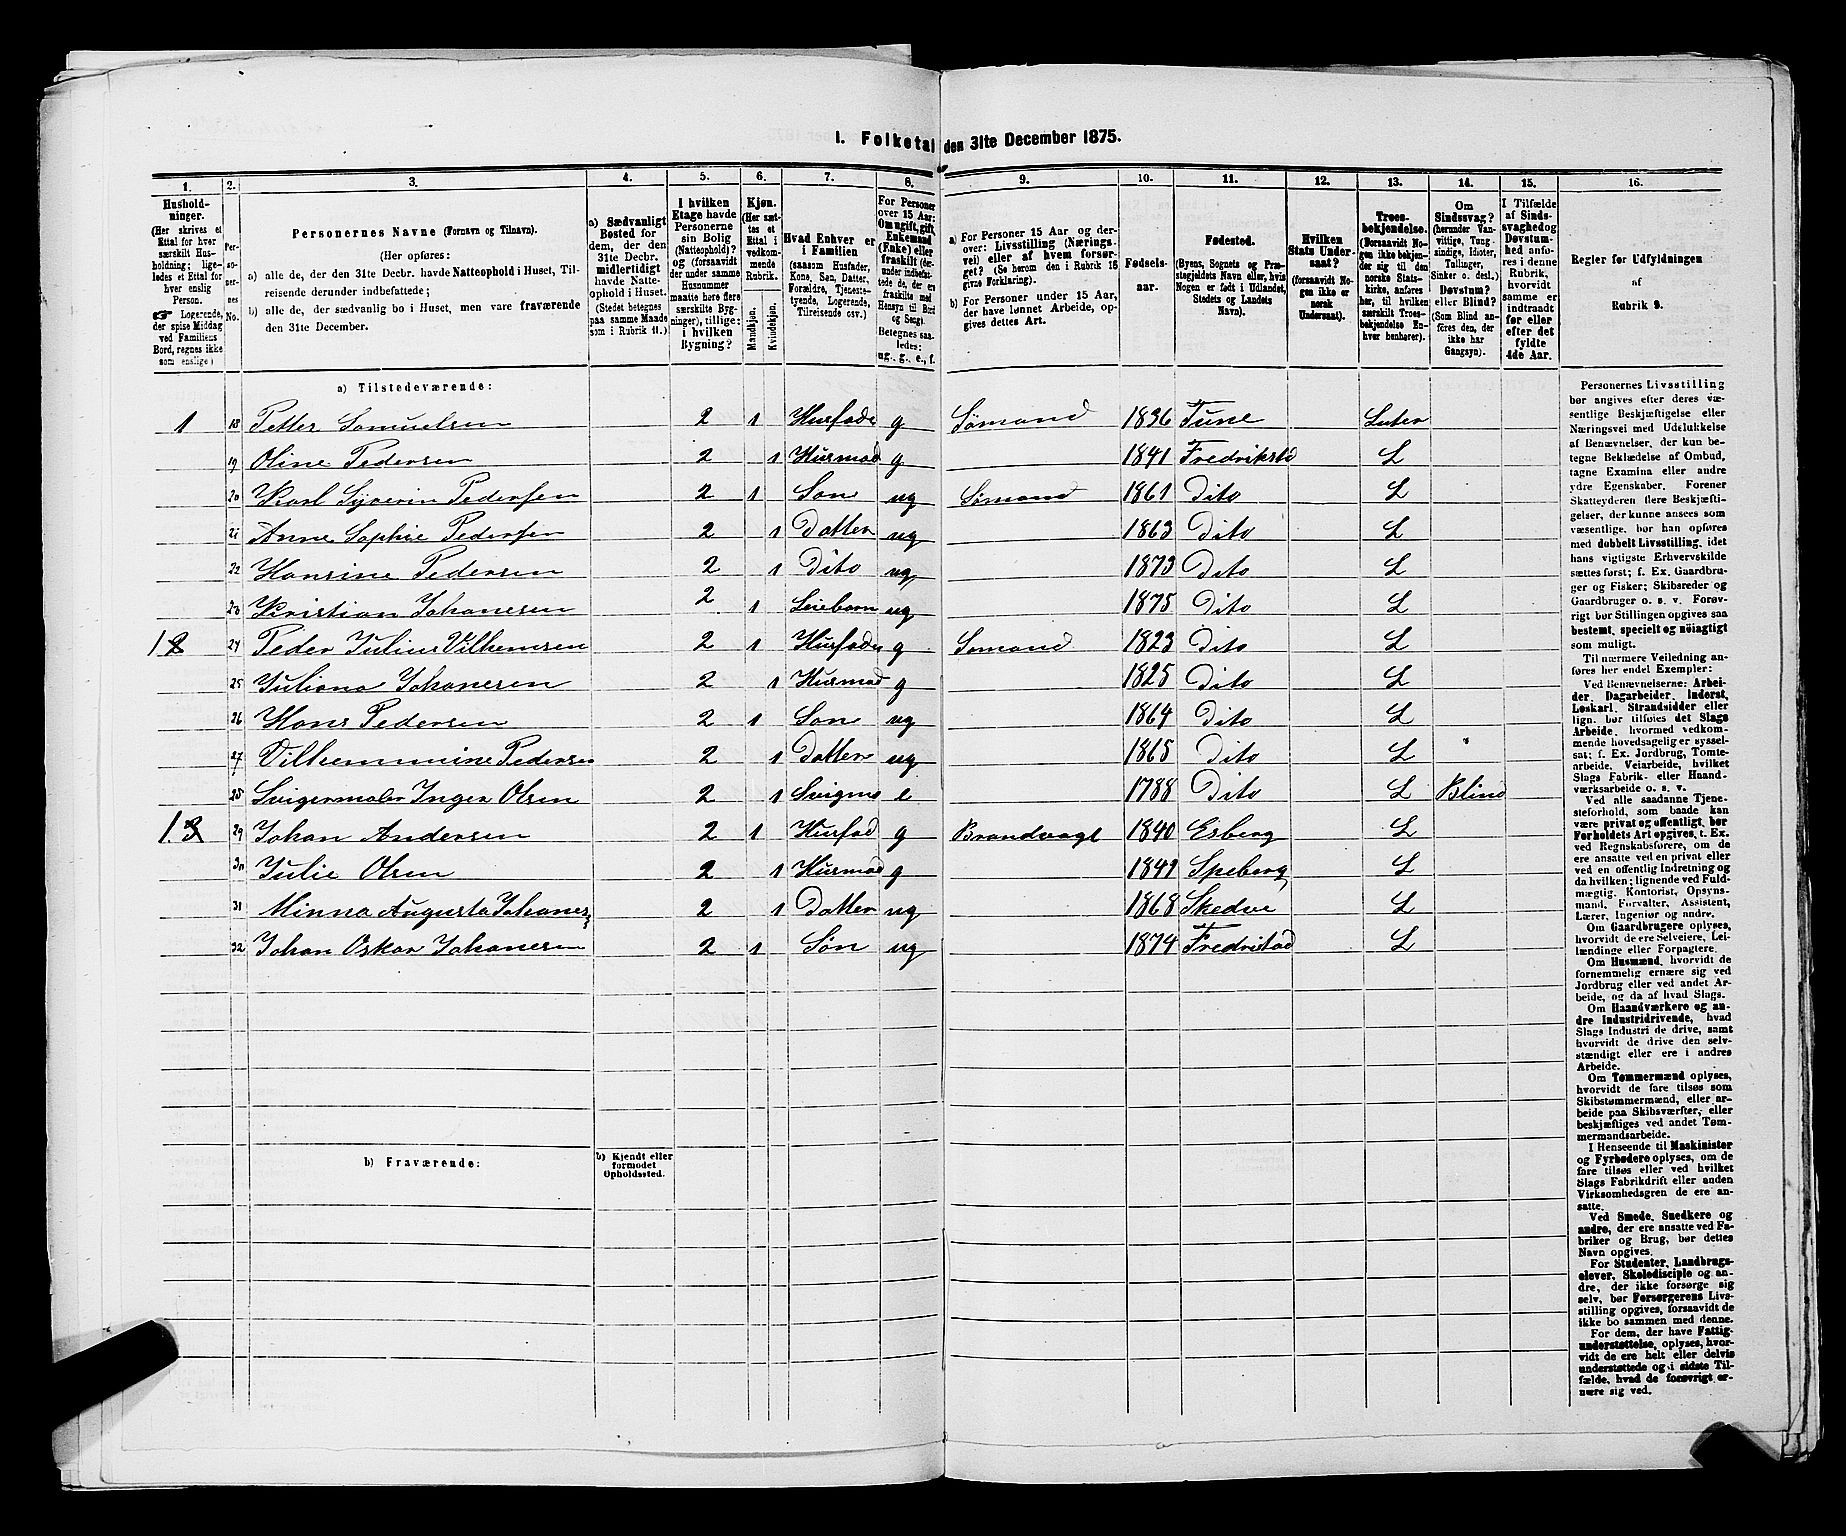 1. Folketal den 31te December 1875.
1. 2. 3. 4. 5. 6. 7. 8. 9. 10. 11. 12. 13. 14. 15. 16.
Hushold-
ninger.
(Her skrives et
Ettal for hver
særskilt Hus-
holdning; lige-
ledes et Ettal for
hver enslig
Person.
☛ Logerende,
der spise Middag
ved Familiens
Bord, regnes ikke
som enslige)
Per-
so-
ner-
nes
No.
Personernes Navne (Fornavn og Tilnavn).
(Her opføres:
a) alle de, der den 31te Decbr. havde Natteophold i Huset, Til-
reisende derunder indbefattede;
b) alle de, der sædvanlig bo i Huset, men vare fraværende
den 31te December.
a) Sædvanligt
Bosted for
dem, der den
31te Decbr.
midlertidigt
havde Natte-
ophold i Huset.
(Stedet betegnes
paa samme Maade
som i Rubrik 11.)
I hvilken
Etage havde
Personerne
sin Bolig
(Natteophold)?
og (forsaavidt
der under samme
Husnummer
maatte høre flere
særskilte Byg-
ninger), tillige:
i hvilken
Bygning?
Kjøn.
(Her sæt-
tes et
Ettal i
vedkom-
mende
Rubrik.
Mandkjøn.
Kvindekjøn.
Hvad Enhver er
i Familien
(saasom Husfader,
Kone, Søn, Datter,
Forældre, Tjeneste-
tyende, Logerende,
Tilreisende osv.)
For Personer
over 15 Aar:
Om ugift, gift,
Enkemand
(Enke) eller
fraskilt (der-
under indbefat-
tede de, der ere
fraskilte med
Hensyn til Bord
og Seng).
Betegnes saa-
ledes:
ug., g., e., f.
a) For Personer 15 Aar og der-
over: Livsstilling (Nærings-
vei) eller af hvem forsør-
get? (Se herom den i Rubrik 16
givne Forklaring).
b) For Personer under 15 Aar,
der have lønnet Arbeide, op-
gives dettes Art.
Fødsels-
aar.
Fødested.
(Byens, Sognets og Præ-
stegjeldets Navn eller, hvis
Nogen er født i Udlandet,
Stedets og Landets
Navn).
Hvilken
Stats Under-
saat?
(forsaavidt No-
gen ikke er
norsk
Undersaat).
Troes-
bekjendelse.
(Forsaavidt No-
gen ikke bekjen-
der sig til den
norske Stats-
kirke, anføres
her, til hvilken
særskilt Troes-
bekjendelse En-
hver henhører).
Om
Sindssvag?
(herunder Van-
vittige, Tung-
sindige, Idioter,
Tullinger,
Sinker o. desl.)
Døvstum?
eller Blind?
(Som Blind an-
føres den, der
ikke har
Gangsyn).
I Tilfælde
af Sinds-
svaghed og
Døvstum-
hed anfø-
res i denne
Rubrik,
hvorvidt
samme er
indtraadt
før eller
efter det
fyldte
4de Aar.
Regler for Udfyldningen
af
Rubrik 9.
a) Tilstedeværende:
1 18 Petter Samuelsen 2 1 Husfade g Sømand 1836 Tune Luter
19 Oline Pedersen 2 1 Husmod g 1841 Fredriksta L
20 Karl Syverin Pedersen 2 1 Søn ug Sømand 1861 Dito L
21 Anne Sophie Pedersen 2 1 Datter ug 1863 Dito L
22 Hansine Pedersen 2 1 Dito ug 1873 Dito L
23 Kristian Johanesen 2 1 Leiebarn ug 1875 Dito L
1 2 24 Peder Julius Vilhemsen 2 1 Husfader g Sømand 1823 Dito L
25 Juliana Johanesen 2 1 Husmod g 1825 Dito L
26 Hans Pedersen 2 1 Søn ug 1864 Dito L
27 Vilhemmine Pedersen 2 1 Datter ug 1865 Dito L
28 Svigermoder Inger Olsen 2 1 Svigmo e 1788 Dito L Blind
1. 3 29 Johan Andersen 2 1 Husfad g Brandvagt 1840 Esberg L
30 Julie Olsen 2 1 Husmod g 1849 Speberg L
31 Minna Augusta Johanes 2 1 Datter ug 1868 Skedve L
32 Johan Oskar Johanesen 2 1 Søn ug 1874 Fredristad L
b) Fraværende:
b) Kjendt eller
formodet
Opholdssted.
Personernes Livsstilling
bør angives efter deres væ-
sentlige Beskjæftigelse eller
Næringsvei med Udelukkelse
af Benævnelser, der kun be-
tegne Beklædelse af Ombud,
tagne Examina eller andre
ydre Egenskaber. Forener
Skatteyderen flere Beskjæfti-
gelser, der kunne ansees som
væsentlige, bør han opføres
med dobbelt Livsstilling, idet
hans vigtigste Erhvervskilde
sættes først; f. Ex. Gaardbru-
ger og Fisker; Skibsreder og
Gaardbruger o. s. v. Forøv-
rigt bør Stillingen opgives saa
bestemt, specielt og nöiagtigt
som muligt.
Til nærmere Veiledning an-
føres her endel Exempler:
Ved Benævnelserne: Arbei-
der, Dagarbeider, Inderst,
Løskarl, Strandsidder eller
lign. bør tilføies det Slags
Arbeide, hvormed vedkom-
mende hovedsagelig er syssel-
sat; f. Ex. Jordbrug, Tomte-
arbeide, Veiarbeide, hvilket
Slags Fabrik- eller Haand-
værksarbeide o. s. v.
Ved alle saadanne Tjene-
steforhold, som baade kan
være privat og offentligt, bør
Forholdets Art opgives, t. Ex.
ved Regnskabsførere, om de
ere ansatte ved en privat eller
ved en offentlig Indretning og
da hvilken; lignende ved Fuld-
mægtig, Kontorist, Opsyns-
mand, Forvalter, Assistent,
Lærer, Ingeniør og andre.
Om Gaardbrugere oplyses,
hvorvidt de ere Selveiere, Lei-
lændinge eller Forpagtere.
Om Husmænd, hvorvidt de
fornemmelig ernære sig ved
Jordbrug eller ved andet Ar-
beide, og da af hvad Slags.
Om Haandværkere og an-
dre Industridrivende, hvad
Slags Industri de drive, samt
hvorvidt de drive den selv-
stændigt eller ere i andres
Arbeide.
Om Tømmermænd oplyses,
hvorvidt de fare tilsøs som
Skibstømmermænd, eller ar-
beide paa Skibsværfter, eller
beskjæftiges ved andet Tøm-
mermandsarbeide.
I Henseende til Maskinister
og Fyrbødere oplyses, om de
fare tilsøs eller ved hvilket
Slags Fabrikdrift eller anden
Virksomhedsgren de ere an-
satte.
Ved Smede, Snedkere og
andre, der ere ansatte ved Fa-
briker og Brug, bør dettes
Navn opgives.
For Studenter, Landbrugs-
elever, Skoledisciple og an-
dre, der ikke forsørge sig
selv, bør Forsørgerens Livs-
stilling opgives, forsaavidt de
ikke bo sammen med denne.
For dem, der have Fattig-
understøttelse, oplyses, hvor-
vidt de ere helt eller delvis
understøttede og i sidste Til-
fælde, hvad de forøvrigt er-
nære sig ved.